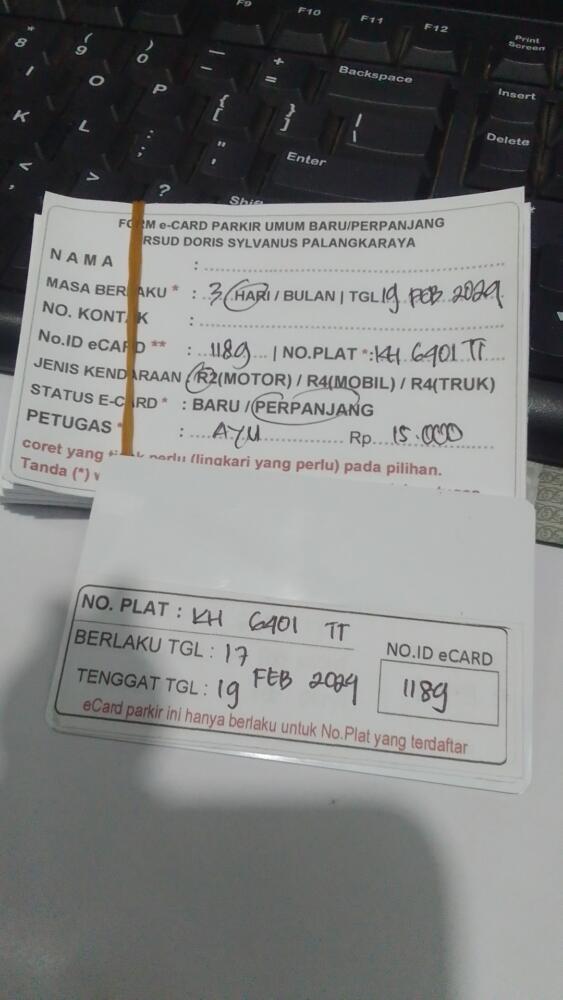 F9 F10 F11 F12
Print Screen
* 8 ( 9 ) 0 — - + = Backspace
Insert
I O P { [ } ] | \
Delete
K L : ; " ' Enter
< , > ?
FORM e-CARD PARKIR UMUM BARU/PERPANJANG
RSUD DORIS SYLVANUS PALANGKARAYA
NAMA :
MASA BERLAKU * : 3 HARI / BULAN | TGL 19 FEB 2029
NO. KONTAK :
No.ID eCARD ** : 1189 | NO.PLAT *: KH 6901 TT
JENIS KENDARAAN R2(MOTOR) / R4(MOBIL) / R4(TRUK)
STATUS E-CARD * : BARU / PERPANJANG
PETUGAS * : AYU Rp. 15.000
coret yang perlu (lingkari yang perlu) pada pilihan.
Tanda (*)
NO. PLAT : KH 6901 TT
BERLAKU TGL : 17
TENGGAT TGL : 19 FEB 2029
NO.ID eCARD
1189
eCard parkir ini hanya berlaku untuk No.Plat yang terdaftar